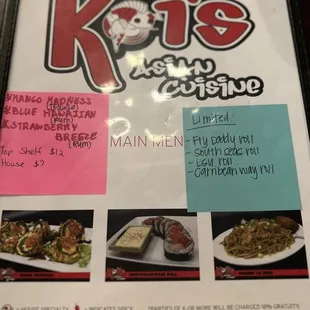 Koi's
Asian
Cuisine
*MANGO MADNESS
(Tequila)
*BLUE HAWAIIAN
(Rum)
*STRAWBERRY
BREEZE
(Rum)
Top Shelf $12
House $7
Limited:
- Fry Daddy roll
- South seas roll
- LSU roll
- Carribean way roll
MAIN MEN
= HOUSE SPECIALTY
= INDICATES SPICY
*PARTIES OF 6 OR MORE WILL BE CHARGED 18% GRATUITY.